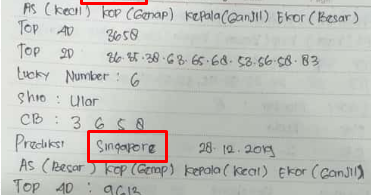 AS (Kecil) Kop (Genap) Kepala (Ganjil) Ekor (Besar)
Top 4D 3658
Top 2D 36.35.38.63.65.68.53.56.58.83
Lucky Number : 6
Shio : Ular
CB : 3 6 5 8
Prediksi Singapore 28.12.2019
AS (Besar) Kop (Genap) Kepala (Kecil) Ekor (Ganjil)
Top 4D : 9613